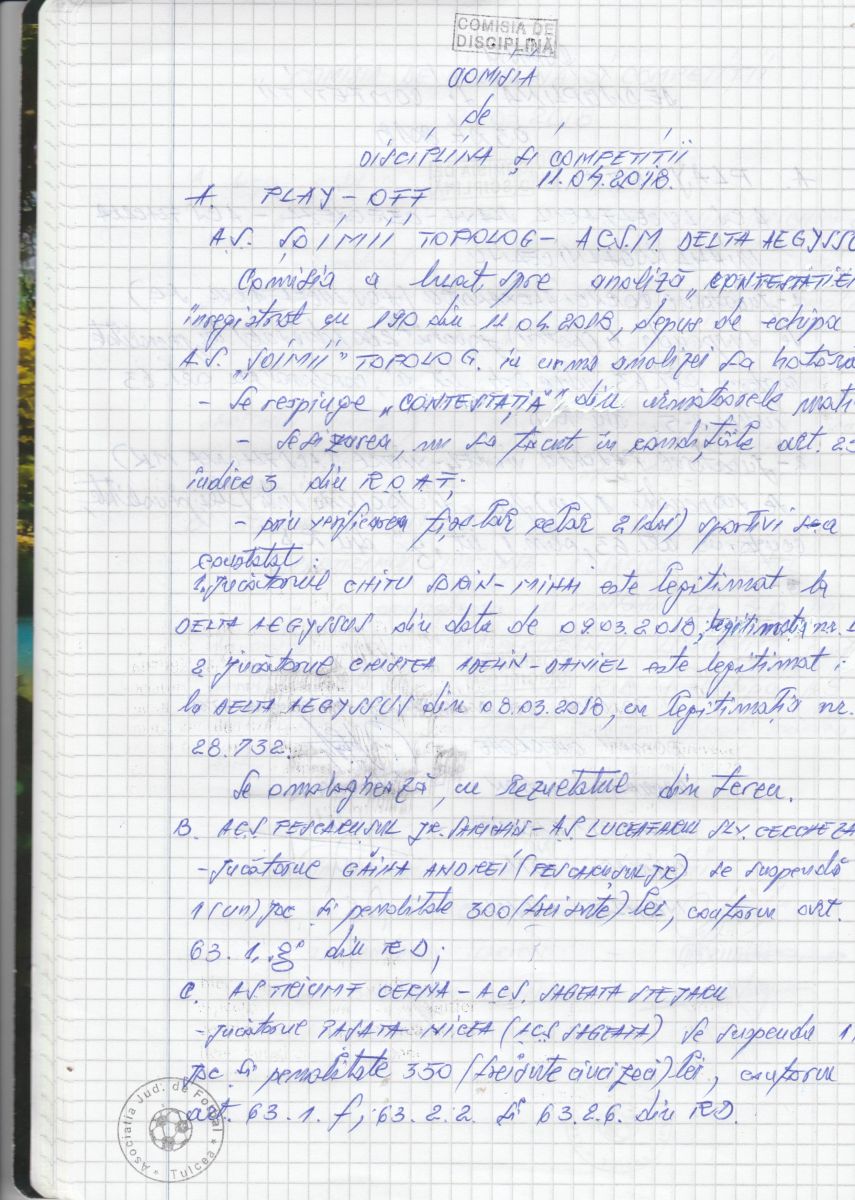 COMISIA DE
DISCIPLINĂ
COMISIA
de
DISCIPLINA ȘI COMPETIȚII
11.04.2018.
A. PLAY-OFF
A.S. ȘOIMII TOPOLOG - A.C.S.M. DELTA AEGYSSU
Comisia a luat spre analiză „CONTESTATIEI
înregistrat cu 190 din 11.04.2018, depus de echipa
A.S. „ȘOIMII" TOPOLOG. în urma analizei s-a hotăr
- Se respinge „CONTESTAȚIA" din următoarele moti
- Sesizarea, nu s-a facut în condițiile art.
indice 3 din R.O.A.F;
- prin verificarea fișelor celor 2(doi) sportivi s-a
constatat:
1. jucătorul CHITU SORIN-MIHAI este legitimat la
DELTA AEGYSSUS din data de 09.03.2018, legitimația nr.
2. jucătorul CRISTEA ADELIN-DANIEL este legitimat
la DELTA AEGYSSUS din 08.03.2018, cu legitimația nr.
28.732.
Se omologhează, cu rezultatul din teren.
B. ACS PESCARUSUL JR. SARICHIOI - AS LUCEAFARUL SLV. CERCHEZA
- jucătorul GĂINA ANDREI (PESCARUSUL JR) se suspendă
1(un) joc și penalitate 300(treisute) lei, conform art.
63.1. g din RD;
C. AS TRIUMF CERNA - A.C.S. SAGEATA STEJARU
- jucătorul PASATA MICEA (ACS SAGEATA) se suspenda 1
joc și penalitate 350 (treisutecincizeci) lei, conform
art. 63.1.f; 63.2.2. și 63.2.6. din RD.
Asociatia Jud. de Fotbal
* Tulcea *